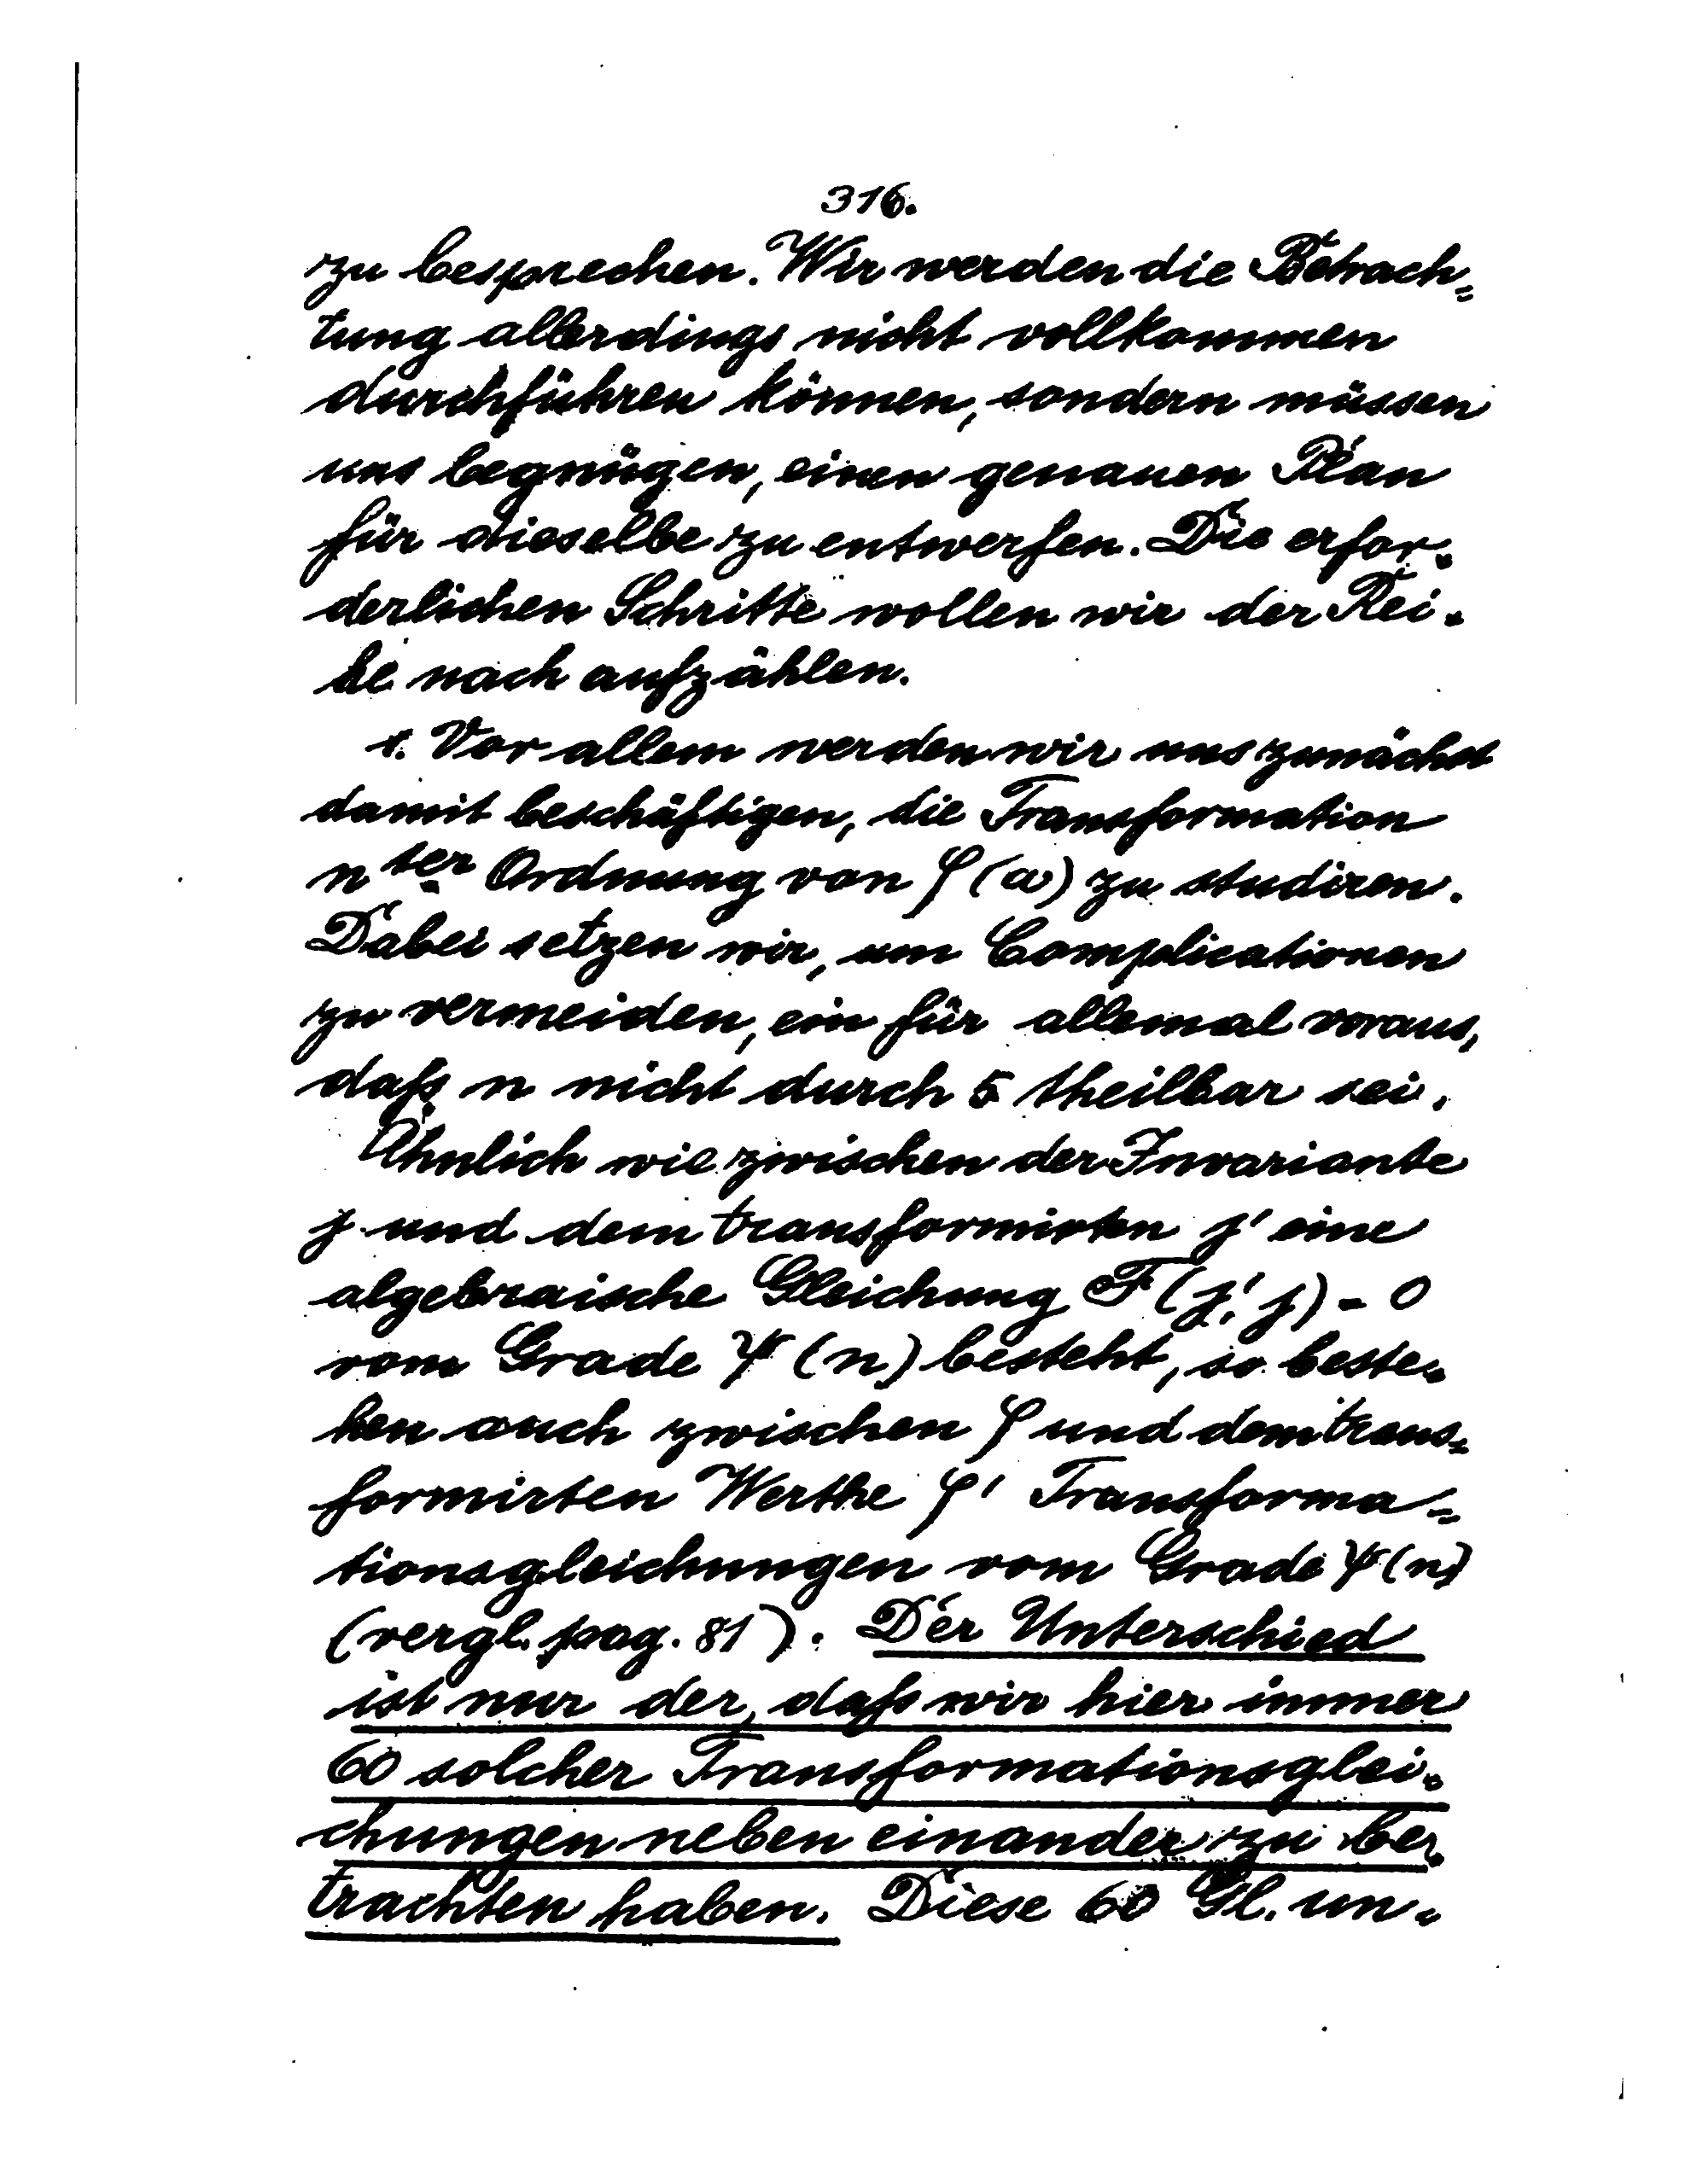 316.
zu besprechen. Wir werden die Betrach-
tung allerdings nicht vollkommen
durchführen können, sondern müssen
uns begnügen, einen genauen Plan
für dieselbe zu entwerfen. Die erfor-
derlichen Schritte wollen wir der Rei-
he nach aufzählen.
1. Vor allem werden wir uns zunächst
damit beschäftigen, die Transformation
n ter Ordnung von ζ(ω) zu studiren.
Dabei setzen wir, um Complicationen
zu vermeiden, ein für allemal voraus,
daß n nicht durch 5 theilbar sei.
Ähnlich wie zwischen der Invariante
j und dem transformirten j' eine
algebraische Gleichung F(j', j) = 0
vom Grade ψ(n) besteht, so beste-
hen auch zwischen ζ und dem trans-
formirten Werthe ζ' Transforma-
tionsgleichungen vom Grade ψ(n)
(vergl. pag. 81). Der Unterschied
ist nur der, daß wir hier immer
60 solcher Transformationsglei-
chungen neben einander zu be-
trachten haben. Diese 60 Gl. un-